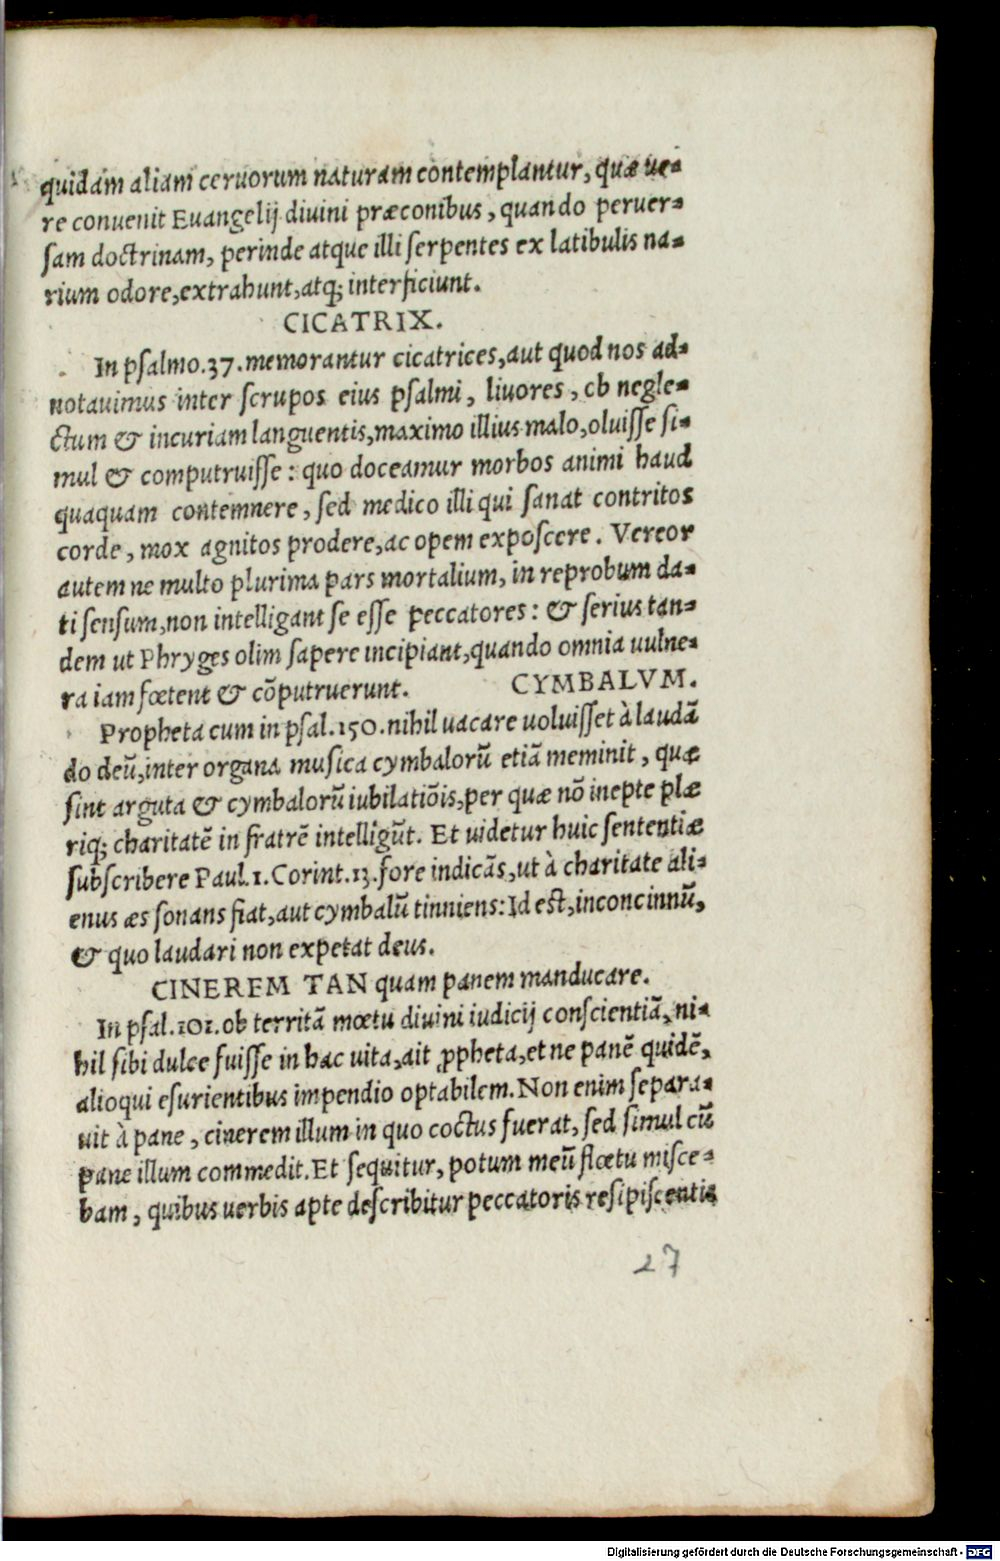 quidam aliam ceruorum naturam contemplantur, quæ ue-
re conuenit Euangelij diuini præconibus, quando peruer-
sam doctrinam, perinde atque illi serpentes ex latibulis na-
rium odore, extrahunt, atq; interficiunt.
CICATRIX.
In psalmo.37.memorantur cicatrices, aut quod nos ad-
notauimus inter scrupos eius psalmi, liuores, ob negle-
ctum & incuriam languentis, maximo illius malo, oluisse si-
mul & computruisse: quo doceamur morbos animi haud
quaquam contemnere, sed medico illi qui sanat contritos
corde, mox agnitos prodere, ac opem exposcere. Vereor
autem ne multo plurima pars mortalium, in reprobum da-
ti sensum, non intelligant se esse peccatores: & serius tan-
dem ut Phryges olim sapere incipiant, quando omnia uulne-
ra iam fœtent & cõputruerunt. CYMBALVM.
Propheta cum in psal.150.nihil uacare uoluisset à laudã
do deũ, inter organa musica cymbalorũ etiã meminit, quæ
sint arguta & cymbalorũ iubilatiõis, per quæ nõ inepte plæ
riq; charitatẽ in fratrẽ intelligũt. Et uidetur huic sententiæ
subscribere Paul.1.Corint.13.fore indicãs, ut à charitate ali-
enus æs sonans fiat, aut cymbalũ tinniens: Id est, inconcinnũ,
& quo laudari non expetat deus.
CINEREM TAN quam panem manducare.
In psal.101.ob territã mœtu diuini iudicij conscientiã, ni-
hil sibi dulce fuisse in hac uita, ait ꝓpheta, et ne panẽ quidẽ,
alioqui esurientibus impendio optabilem. Non enim separa-
uit à pane, cinerem illum in quo coctus fuerat, sed simul cũ
pane illum commedit. Et sequitur, potum meũ flœtu misce-
bam, quibus uerbis apte describitur peccatoris resipiscentis
27
Digitalisierung gefördert durch die Deutsche Forschungsgemeinschaft - DFG